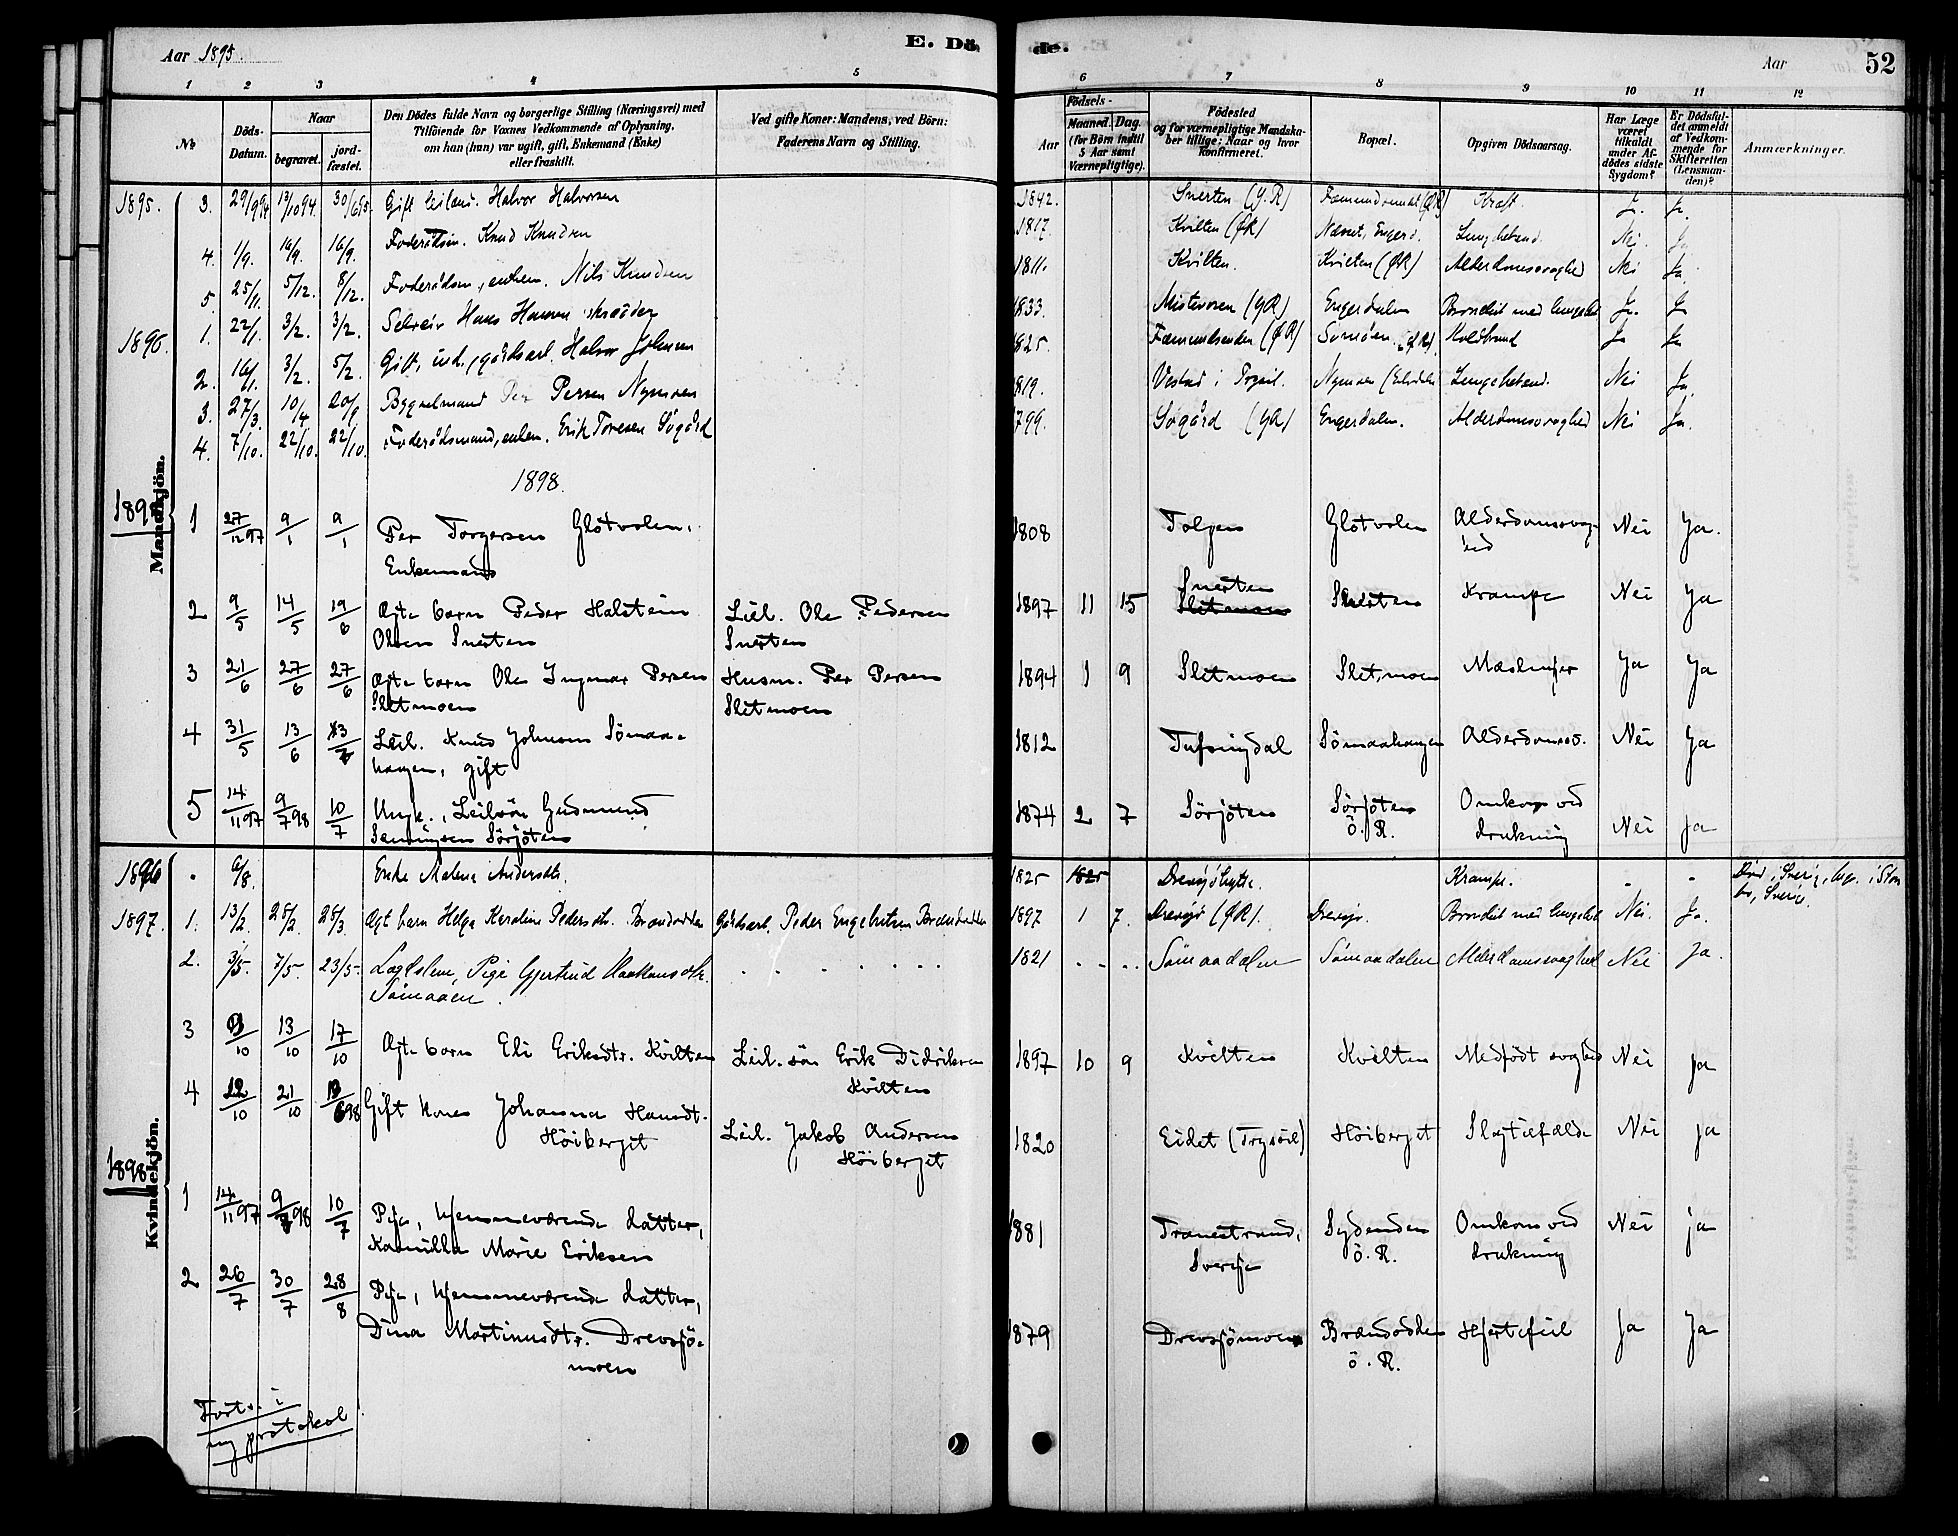 Aar 1895.
E. Dö
de.
Aar
52
1 2 3 4 5 6 7 8 9 10 11 12
No
Döds-Datum.
Naar
begravet.
jord-fæstet.
Den Dödes fulde Navn og borgerlige Stilling (Næringsvei) med
Tilföiende for Voxnes Vedkommende af Oplysning,
om han (hun) var ugift, gift, Enkemand (Enke)
eller fraskilt.
Ved gifte Koner: Mandens, ved Börn:
Faderens Navn og Stilling.
Födsels-
Aar
Maaned. Dag.
(for Börn indtil
5 Aar samt
Værnepligtige).
Födested
og for værnepligtige Mandska-
ber tillige: Naar og hvor
Konfirmeret.
Bopæl.
Opgiven Dödsaarsag.
Har Læge
været
tilkaldt
under Af-
dödes sidste
Sygdom?
Er Dödsfal-
det anmeldt
af Vedkom-
mende for
Skifteretten
(Lensman-
den)?
Anmærkninger.
Mandkjön.
1895. 3. 29/9 94 19/10 94. 30/6 95. Gift Halvor Halvorsen 1842. Snerten (Y.R) Kræft. Ja. Ja.
4. 1/9. 16/9. 16/9. Foderådsm. Knud Knudsen 1817. Kvilten (ØR) Engerd. Lungebetænd. Nei. Ja
5. 25/11. 5/12. 8/12. Foderådsm., enkem. Nils Knudsen 1811. Kvilten. Kvilten (ØR) Alderdomssvaghed Nei Ja.
1896. 1. 22/1. 3/2. 3/2. Hans Hansen skrædder 1833. Mistervoren (YR) Engerdalen Ja. Ja
2. 16/1. 3/2. 5/2. Gift, ind., gårdsarb. Halvor Johnsen 1825. Femundsenden (ØR) Koldbrand Ja Ja
3. 27/3. 10/4. 20/9 Bygselmand Per Persen Nymoen 1819. Vestad i Trysil. Nymoen Lungebetænd. Nei Ja
4. 7/10. 22/10. 22/10. Foderådsmand, enkem. Erik Toresen Sögård 1799. Sögård (YR) Engerdalen. Alderdomssvaghed Nei Ja.
1898.
1 27/12 97 9/1 9/1 Per Torgersen Glötvolen, 1808 Tolgen Glötvolen Alderdomssvag- Nei Ja.
Enkemand hed
2 9/5 14/5 19/6 Ægte barn Peder Halstein Leil. Ole Pedersen 1897 11 15 Snerten Snerten Krampe Nei Ja
Olsen Snerten Snerten
3 21/6 27/6 27/6 Ægte barn Ole Ingmar Persen Husm. Per Persen 1894 1 9 Sletmoen Sletmoen Mæslinger Ja Ja
Sletmoen Sletmoen
4 31/5 13/6 Leil. Knud Johnsen Sömaa- 1812 Tufsingdal Sömaahaugen Alderdomss. Nei Ja
haugen, gift
5 14/11 97 9/7 98 10/7 Ungk., Leilsön Gudmund 1874 2 7 Sörjöten Sörjöten Omkom ved Nei Ja
Sörjöten Ö. R. drukning
Kvindekjön.
1896 6/8. Enke Malena Andersdtr. 1825 Drevsjöhytte. Krampe.
1897. 1. 13/2. 25/2. 25/3. Ægt barn Helga Karoline Pedersdtr. Brændodden Gårdsarb. Peder Engebretsen Brændodden 1897 1 7. Drevsjö (ØR). Drevsjö. Nei. Ja.
2. 3/5. 7/5. 23/5. Lægdslem, Pige Gjertrud Haakensdtr. 1821 Sömaadalen Sömaadalen Alderdomssvaghed Nei Ja.
Sömaaen.
3 13/10 17/10 Ægte barn Eli Eriksdtr. Kvilten Leil. sön Erik Didriksen 1897 10 9 Kvilten Kvilten Medfödt svaghed Nei Ja
Kvilten
4 12/10 21/10 Gift kone Johanna Hansdt. Leil. Jakob Andersen 1820 Eidet (Trysil) Höiberget Slagtilfælde Nei Ja
Höiberget Höiberget
1898
1 14/11 97 9/7 98 10/7 Pige, hjemmeværende datter, 1881 Tranestrand, Sydenden Omkom ved Nei ja
Kamilla Marie Eriksen Sverige Ö. R. drukning
2 26/7 30/7 28/8 Pige, hjemmeværende datter, 1879 Drevsjömoen Brændodden Hjertefeil Ja Ja
Dina Martinusdtr. Drevsjö- Ö. R.
moen
Forts. i
ny protokol